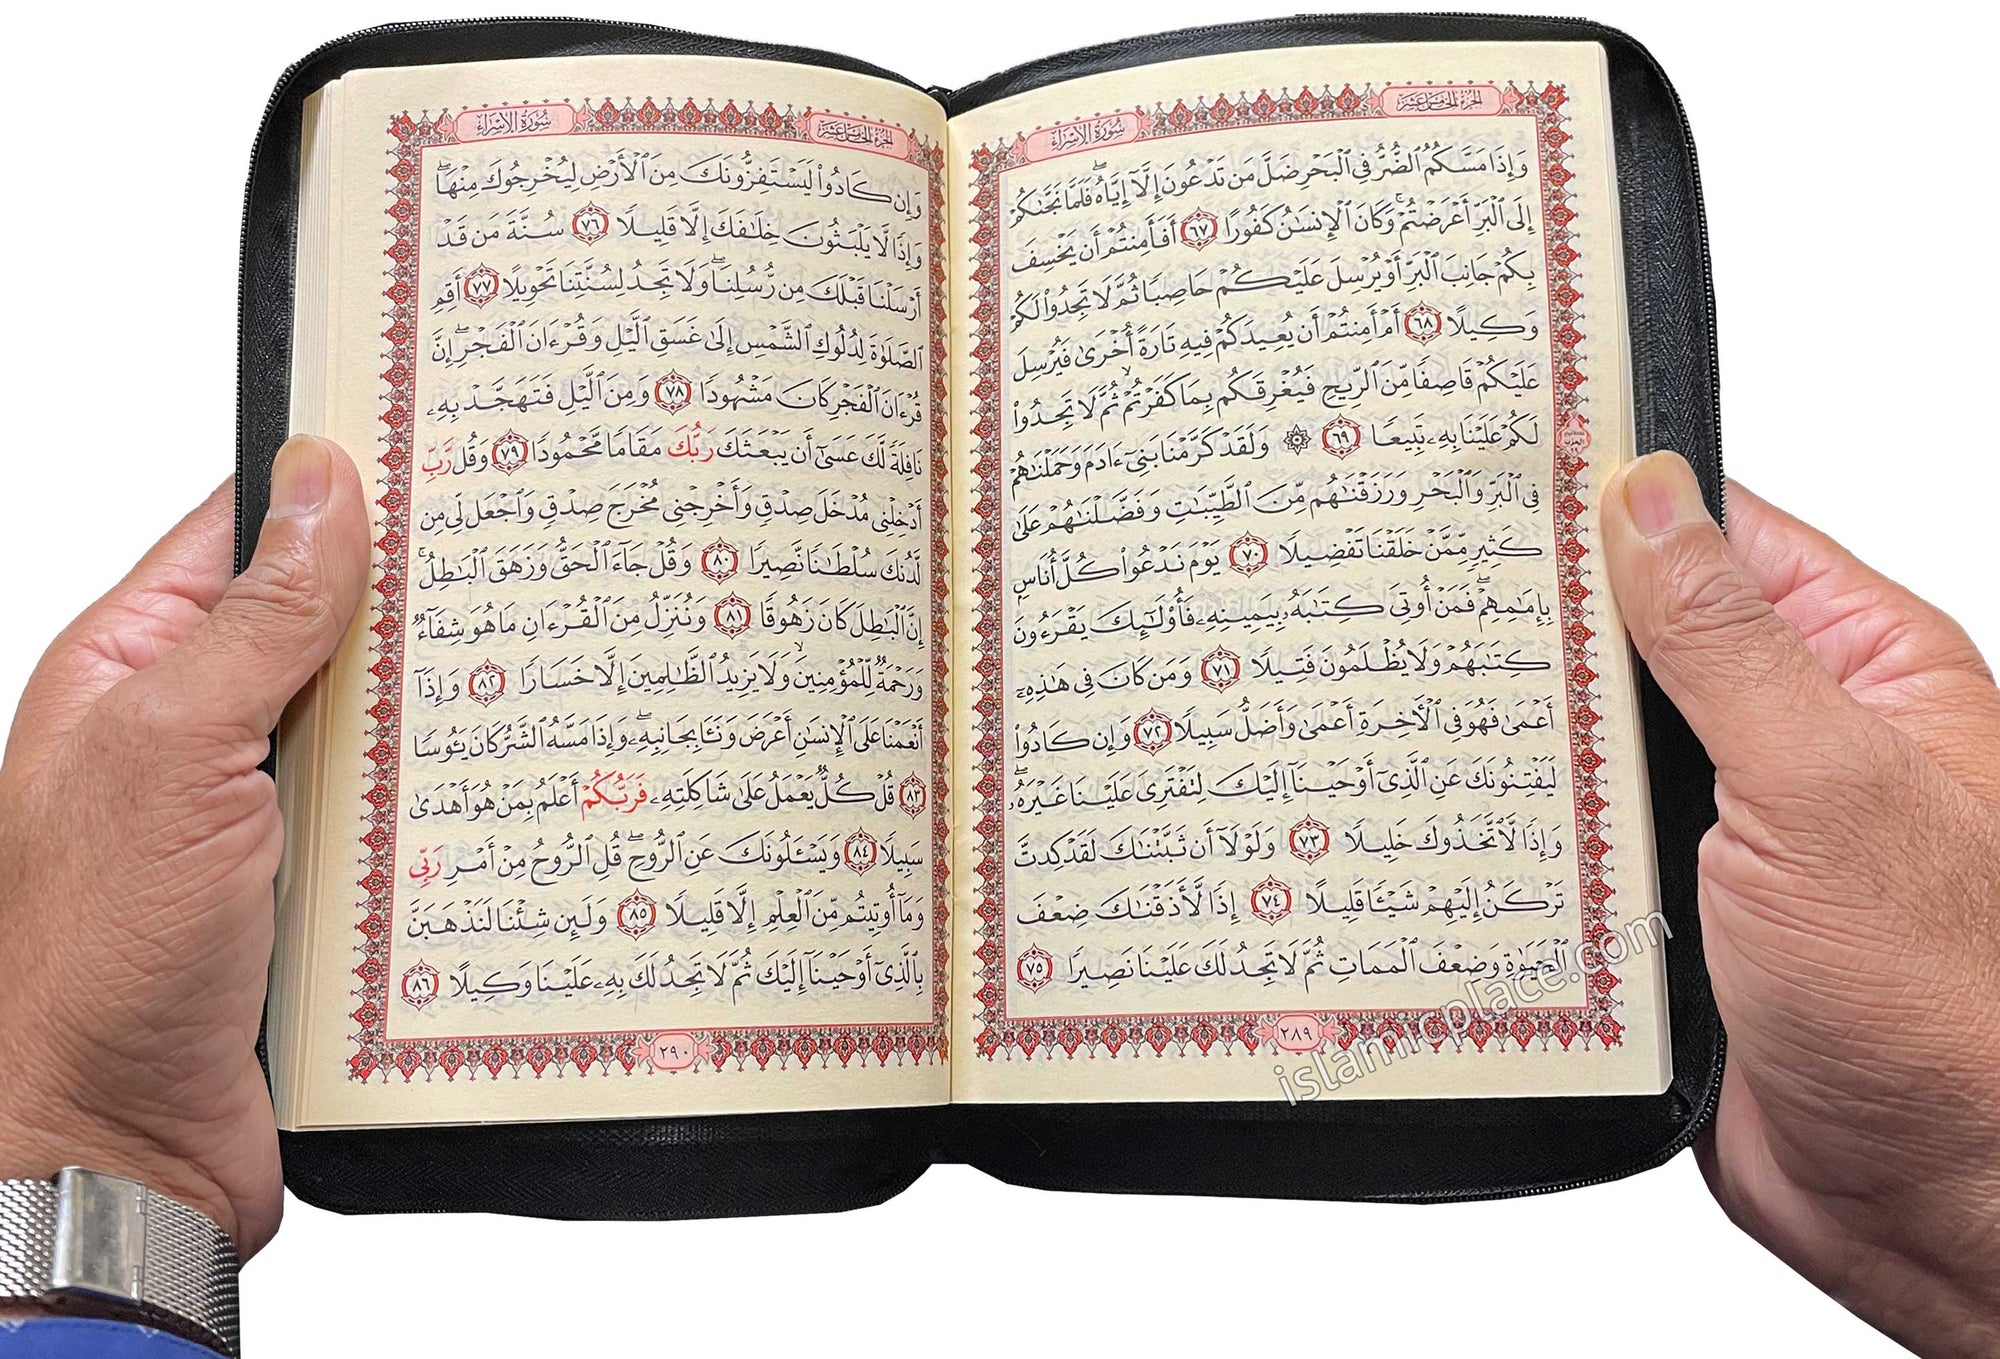 سُورَةُ الإِسْرَاءِ
الجُزْءُ الخَامِسَ عَشَرَ
وَإِذَا مَسَّكُمُ ٱلضُّرُّ فِى ٱلْبَحْرِ ضَلَّ مَن تَدْعُونَ إِلَّآ إِيَّاهُ ۖ فَلَمَّا نَجَّىٰكُمْ
إِلَى ٱلْبَرِّ أَعْرَضْتُمْ ۚ وَكَانَ ٱلْإِنسَـٰنُ كَفُورًا ٦٧ أَفَأَمِنتُمْ أَن يَخْسِفَ
بِكُمْ جَانِبَ ٱلْبَرِّ أَوْ يُرْسِلَ عَلَيْكُمْ حَاصِبًا ثُمَّ لَا تَجِدُوا۟ لَكُمْ
وَكِيلًا ٦٨ أَمْ أَمِنتُمْ أَن يُعِيدَكُمْ فِيهِ تَارَةً أُخْرَىٰ فَيُرْسِلَ
عَلَيْكُمْ قَاصِفًا مِّنَ ٱلرِّيحِ فَيُغْرِقَكُم بِمَا كَفَرْتُمْ ۙ ثُمَّ لَا تَجِدُوا۟
لَكُمْ عَلَيْنَا بِهِۦ تَبِيعًا ٦٩ ۞ وَلَقَدْ كَرَّمْنَا بَنِىٓ ءَادَمَ وَحَمَلْنَـٰهُمْ
فِى ٱلْبَرِّ وَٱلْبَحْرِ وَرَزَقْنَـٰهُم مِّنَ ٱلطَّيِّبَـٰتِ وَفَضَّلْنَـٰهُمْ عَلَىٰ
كَثِيرٍ مِّمَّنْ خَلَقْنَا تَفْضِيلًا ٧٠ يَوْمَ نَدْعُوا۟ كُلَّ أُنَاسٍۭ
بِإِمَـٰمِهِمْ ۖ فَمَنْ أُوتِىَ كِتَـٰبَهُۥ بِيَمِينِهِۦ فَأُو۟لَـٰٓئِكَ يَقْرَءُونَ
كِتَـٰبَهُمْ وَلَا يُظْلَمُونَ فَتِيلًا ٧١ وَمَن كَانَ فِى هَـٰذِهِۦٓ
أَعْمَىٰ فَهُوَ فِى ٱلْـَٔاخِرَةِ أَعْمَىٰ وَأَضَلُّ سَبِيلًا ٧٢ وَإِن كَادُوا۟
لَيَفْتِنُونَكَ عَنِ ٱلَّذِىٓ أَوْحَيْنَآ إِلَيْكَ لِتَفْتَرِىَ عَلَيْنَا غَيْرَهُۥ ۖ
وَإِذًا لَّٱتَّخَذُوكَ خَلِيلًا ٧٣ وَلَوْلَآ أَن ثَبَّتْنَـٰكَ لَقَدْ كِدتَّ
تَرْكَنُ إِلَيْهِمْ شَيْـًٔا قَلِيلًا ٧٤ إِذًا لَّأَذَقْنَـٰكَ ضِعْفَ
ٱلْحَيَوٰةِ وَضِعْفَ ٱلْمَمَاتِ ثُمَّ لَا تَجِدُ لَكَ عَلَيْنَا نَصِيرًا ٧٥
٢٨٩
سُورَةُ الإِسْرَاءِ
الجُزْءُ الخَامِسَ عَشَرَ
وَإِن كَادُوا۟ لَيَسْتَفِزُّونَكَ مِنَ ٱلْأَرْضِ لِيُخْرِجُوكَ مِنْهَا ۖ
وَإِذًا لَّا يَلْبَثُونَ خِلَـٰفَكَ إِلَّا قَلِيلًا ٧٦ سُنَّةَ مَن قَدْ
أَرْسَلْنَا قَبْلَكَ مِن رُّسُلِنَا ۖ وَلَا تَجِدُ لِسُنَّتِنَا تَحْوِيلًا ٧٧ أَقِمِ
ٱلصَّلَوٰةَ لِدُلُوكِ ٱلشَّمْسِ إِلَىٰ غَسَقِ ٱلَّيْلِ وَقُرْءَانَ ٱلْفَجْرِ ۖ إِنَّ
قُرْءَانَ ٱلْفَجْرِ كَانَ مَشْهُودًا ٧٨ وَمِنَ ٱلَّيْلِ فَتَهَجَّدْ بِهِۦ
نَافِلَةً لَّكَ عَسَىٰٓ أَن يَبْعَثَكَ رَبُّكَ مَقَامًا مَّحْمُودًا ٧٩ وَقُل رَّبِّ
أَدْخِلْنِى مُدْخَلَ صِدْقٍ وَأَخْرِجْنِى مُخْرَجَ صِدْقٍ وَٱجْعَل لِّى مِن
لَّدُنكَ سُلْطَـٰنًا نَّصِيرًا ٨٠ وَقُلْ جَآءَ ٱلْحَقُّ وَزَهَقَ ٱلْبَـٰطِلُ ۚ
إِنَّ ٱلْبَـٰطِلَ كَانَ زَهُوقًا ٨١ وَنُنَزِّلُ مِنَ ٱلْقُرْءَانِ مَا هُوَ شِفَآءٌ
وَرَحْمَةٌ لِّلْمُؤْمِنِينَ ۙ وَلَا يَزِيدُ ٱلظَّـٰلِمِينَ إِلَّا خَسَارًا ٨٢ وَإِذَآ
أَنْعَمْنَا عَلَى ٱلْإِنسَـٰنِ أَعْرَضَ وَنَـَٔا بِجَانِبِهِۦ ۖ وَإِذَا مَسَّهُ ٱلشَّرُّ كَانَ يَـُٔوسًا
٨٣ قُلْ كُلٌّ يَعْمَلُ عَلَىٰ شَاكِلَتِهِۦ فَرَبُّكُمْ أَعْلَمُ بِمَنْ هُوَ أَهْدَىٰ
سَبِيلًا ٨٤ وَيَسْـَٔلُونَكَ عَنِ ٱلرُّوحِ ۖ قُلِ ٱلرُّوحُ مِنْ أَمْرِ رَبِّى
وَمَآ أُوتِيتُم مِّنَ ٱلْعِلْمِ إِلَّا قَلِيلًا ٨٥ وَلَئِن شِئْنَا لَنَذْهَبَنَّ
بِٱلَّذِىٓ أَوْحَيْنَآ إِلَيْكَ ثُمَّ لَا تَجِدُ لَكَ بِهِۦ عَلَيْنَا وَكِيلًا ٨٦
٢٩٠
islamicplace.com